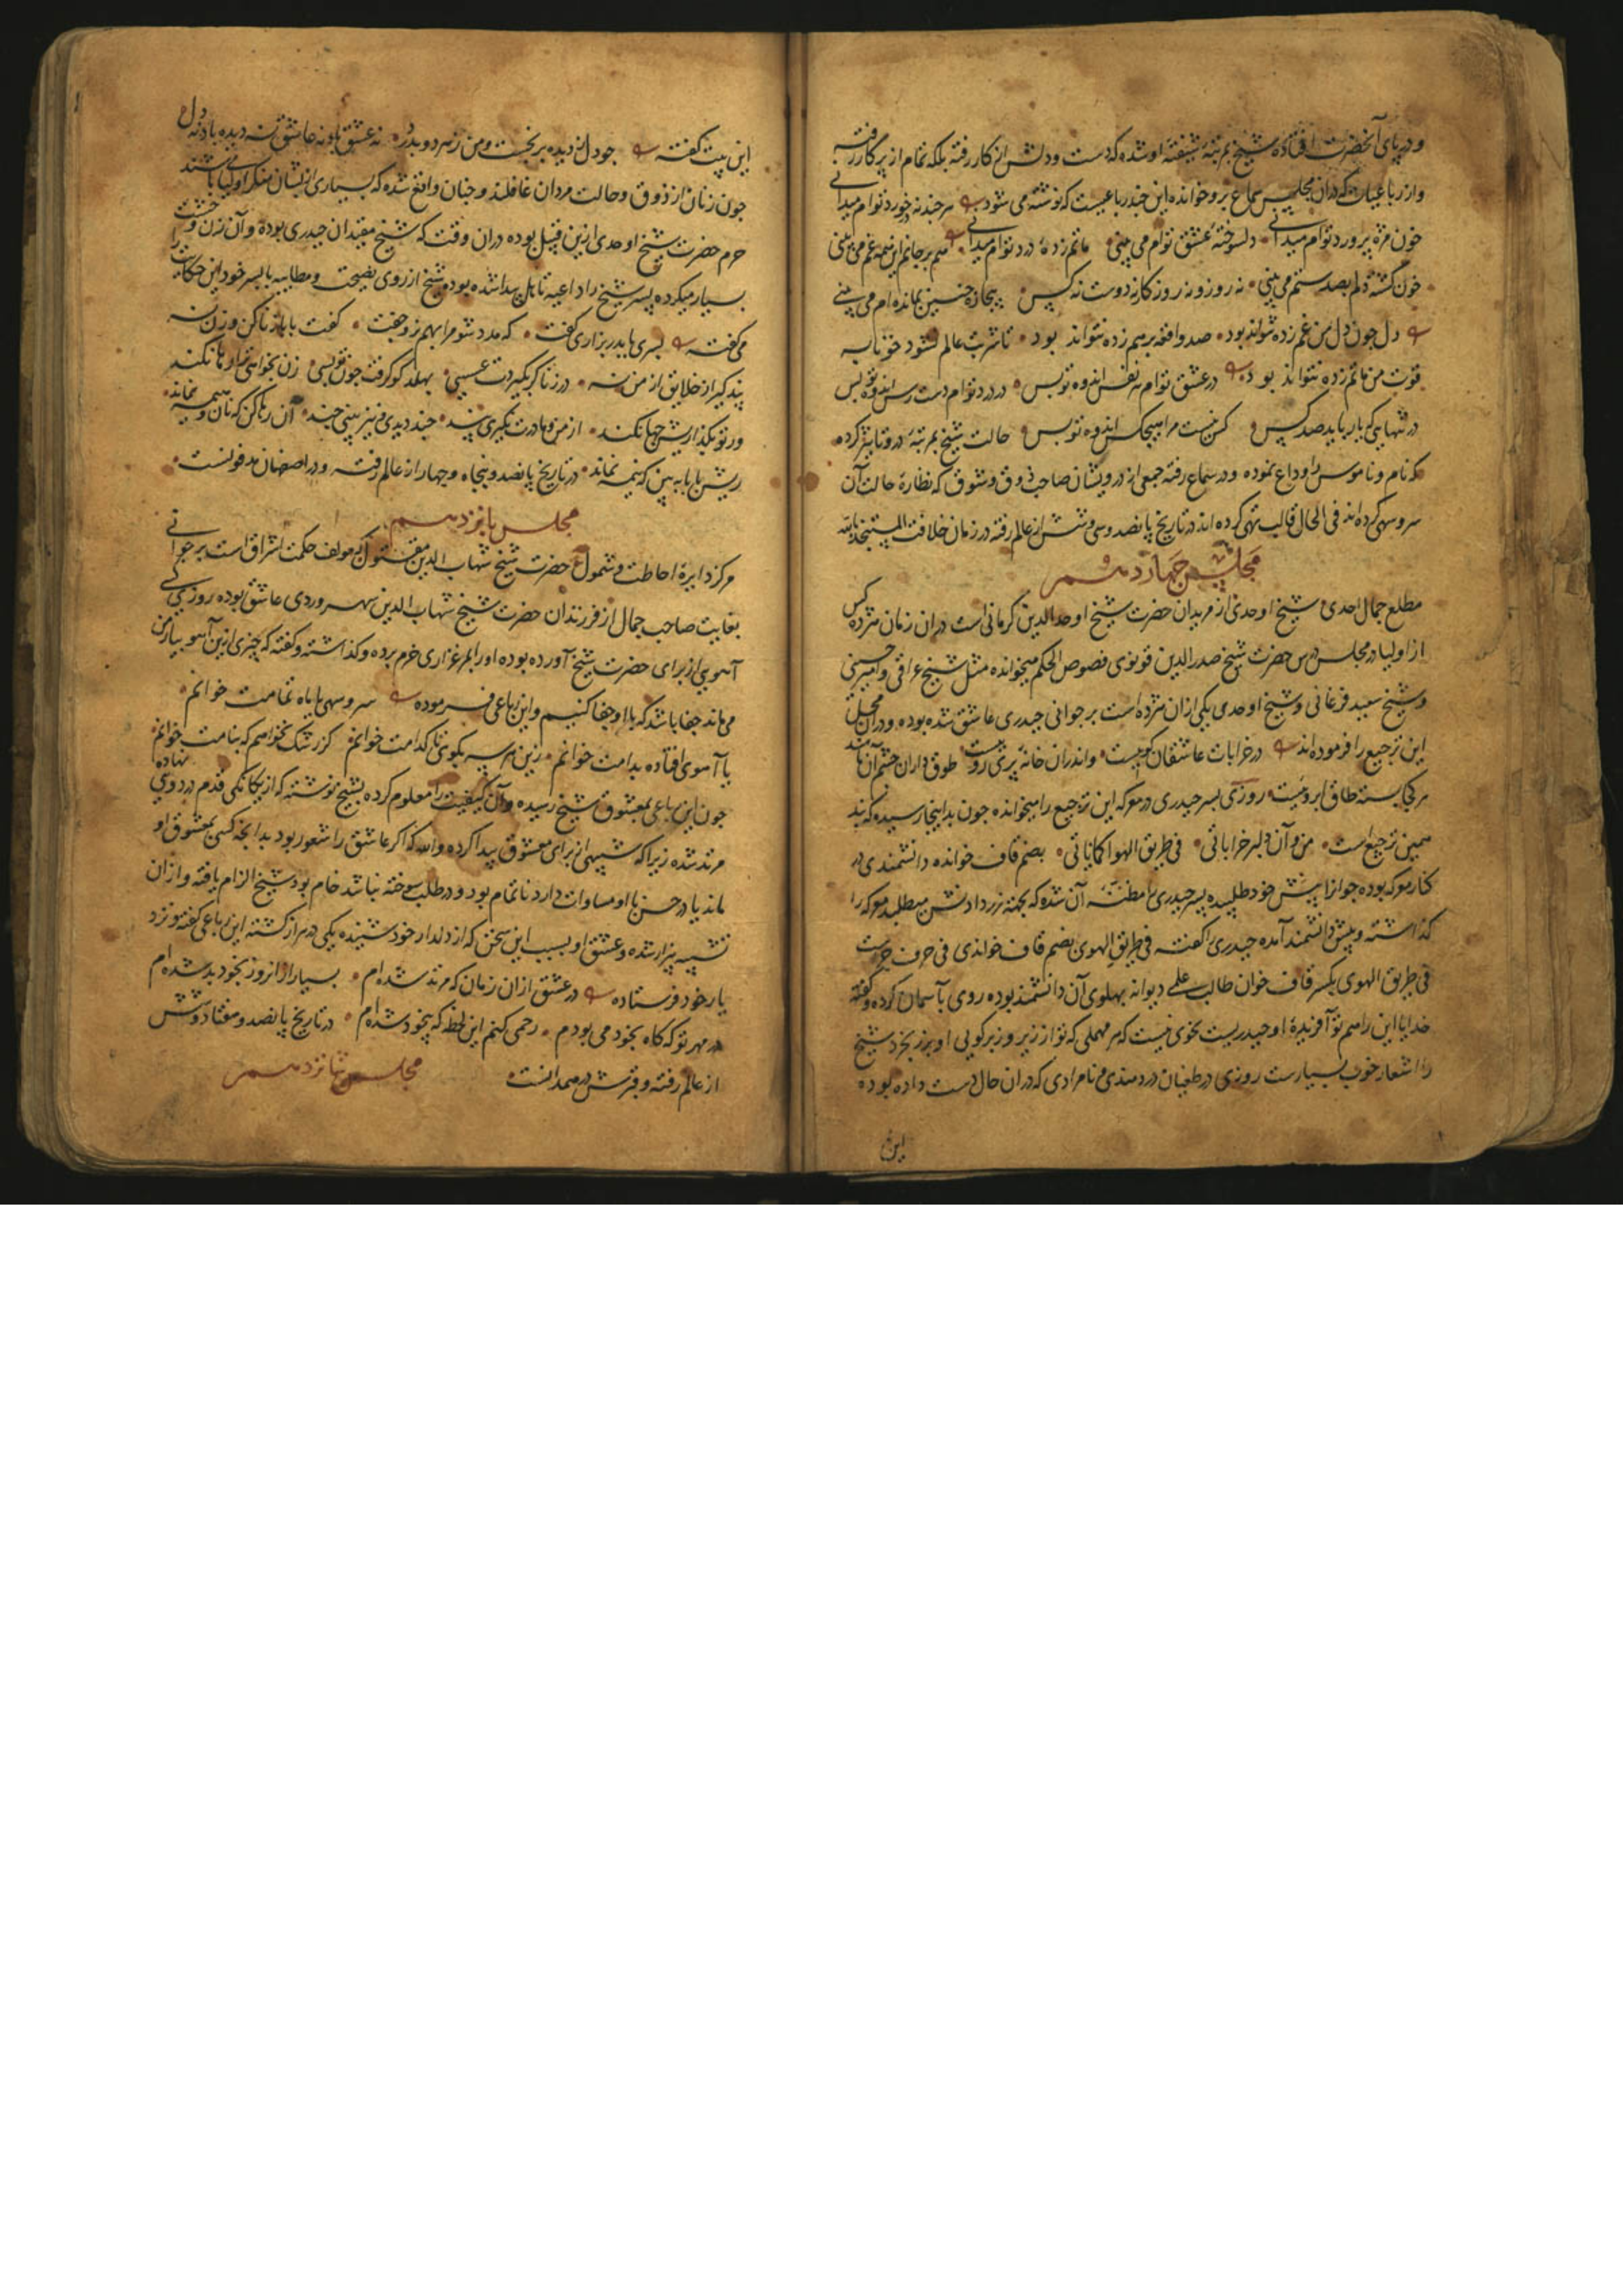 و در پای آنحضرت افتاده شیخ بمرتبهٔ شیفتهٔ او شده که دست و دلش از کار رفته بلکه تمام از پرکار رفته
و از رباعیات که در آن مجلس سماع برو خوانده این چند رباعیست که نوشته می شود هرچند نه در خورد توام میدانی
خون مژه پرورد توام میدانی دلسوختهٔ عشق توام می بینی ماتم زدهٔ درد توام میدانی هم بر جانم این همه غم می بینی
خون کشته دلم بصد ستم می بینی نه روز و نه روزکار نه دوست نه کس بیچاره چنین بمانده ام می بینی
دل چون دل من غم زده نتواند بود صد واقعه بر هم زده نتواند بود تا شربت عالم نشود خونابه
قوت من ماتم زده نتواند بود در عشق توام هم نفس اندوه تو بس در درد توام دست رس اندوه تو بس
در تنهایی که یار باید صد کس کس نیست مرا هیچکس اندوه تو بس حالت شیخ بمرتبهٔ درو تاثیر کرده
که نام و ناموس را وداع نموده و در سماع رفته جمعی از درویشان صاحب ذوق و شوق که نظارهٔ حالت آن
سرو سهی کرده اند فی الحال قالب تهی کرده اند در تاریخ پانصد و سی و شش از عالم رفته در زمان خلافت المستنجد بالله
مجلس چهاردهم
مطلع جمال احدی شیخ اوحدی از مریدان حضرت شیخ اوحدالدین کرمانی است در آن زمان هژده کس
از اولیا در مجلس درس حضرت شیخ صدرالدین قونوی فصوص الحکم میخوانده مثل شیخ عراقی و امیر حسینی
و شیخ سعید فرغانی و شیخ اوحدی یکی از آن هژده است بر جوانی حیدری عاشق شده بوده و در آن محل
این ترجیع را فرموده اند در خرابات عاشقان کوییست و اندران خانه پری روییست طوق داران چشم آن ماهند
هر کجا بسته طاق ابروییست روزی پسر حیدری در معرکه این ترجیع را میخوانده چون بدینجا رسیده که بند
همین ترجیع است من و آن دلبر خراباتی فی طریق الهوا کمایاتی بضم قاف خوانده دانشمندی در
کنار معرکه بوده جوانرا پیش خود طلبیده پسر حیدری را مظنهٔ آن شده که بجهة زر دادنش میطلبد معرکه را
گذاشته و پیش دانشمند آمده حیدری را کفته فی طریق الهوی بضم قاف خواندی فی حرف جرست
فی طریق الهوی بکسر قاف خوان طالب علمی دیوانه بهلوی آن دانشمند بوده روی بآسمان کرده و کفته
خدایا این را هم تو آفریدهٔ او حیدریست نحوی نیست که هر مهملی که تو از زیر و زبر کویی او بزر بخرد شیخ
را اشعار خوب بسیارست روزی در طغیان دردمندی و نامرادی که در آن حال دست داده بوده
این
این بیت کفته چو دل ز دیده بر نجست و من ز هر دو بدرد نه عشق باد نه عاشق نه دیده باد نه دل
چون زنان از ذوق و حالت مردان غافلند و چنان واقع شده که بسیاری از ایشان منکر اولیا می باشند
حرم حضرت شیخ اوحدی ازین قبیل بوده در آن وقت که شیخ مقید آن حیدری بوده و آن زن وحشت
بسیار میکرده پسر شیخ را داعیه تاهل پیدا شده بوده شیخ از روی نصیحت و مطایبه با پسر خود این حکایت را
می کفته پسری با پدر بزاری کفت که مدد شو مرا بهم ز و جفت کفت بابا زنا کن و زن نه
پند کیر از خلایق از من نه در زنا کر بکیردت عسسی بهلد کو کرفت چون تو بسی زن بخواهی ترا رها نکند
ور تو بکذاریش چها نکند از من و مادرت نکیری پند چند دیدی و نیز بینی چند آن رها کن که نان و هیمه نماند
ریش بابا ببین که نیمه نماند در تاریخ پانصد و پنجاه و چهار از عالم رفته و در اصفهان مدفونست
مجلس پانزدهم
مرکز دایرهٔ احاطت و شمول حضرت شیخ شهاب الدین مقتول که مولف حکمت اشراق است بر جوانی
بغایت صاحب جمال از فرزندان حضرت شیخ شهاب الدین سهروردی عاشق بوده روزی کسی
آهویی از برای حضرت شیخ آورده بوده او را بمرغزاری خرم برده و کذاشته و کفته که چیزی ازین آهو بیار من
می ماند جفا باشد که با او جفا کنیم و این رباعی فرموده سرو سهی یا ماه تمامت خوانم
یا آهوی افتاده بدامت خوانم زین هر سه بکوی تا کدامت خوانم کز رشک نخواهم که بنامت خوانم
چون این رباعی بمعشوق شیخ رسیده و آن کیفیت را معلوم کرده بشیخ نوشته که از یکانکی قدم در دویی نهاده
مرتد شده زیرا که شبیهی از برای معشوق پیدا کرده والله که اکر عاشق را شعور بود بدانچه کسی بمعشوق او
ماند یا در حسن با او مساوات دارد ناتمام بود و در طلب سوخته نباشد خام بود شیخ الزام یافته و از آن
تشبیه بیزار شده و عشق او بسبب این سخن که از دلدار خود شنیده یکی در هزار کشته این رباعی کفته و نزد
یار خود فرستاده در عشق از آن زمان که مرتد شده ام بسیار از آنروز بخود بد شده ام
در مهر تو که کاه بخود می بودم رحمی کنم این لحظه که بیخود شده ام در تاریخ پانصد و هفتاد و شش
از عالم رفته و قبرش در همدانست مجلس شانزدهم